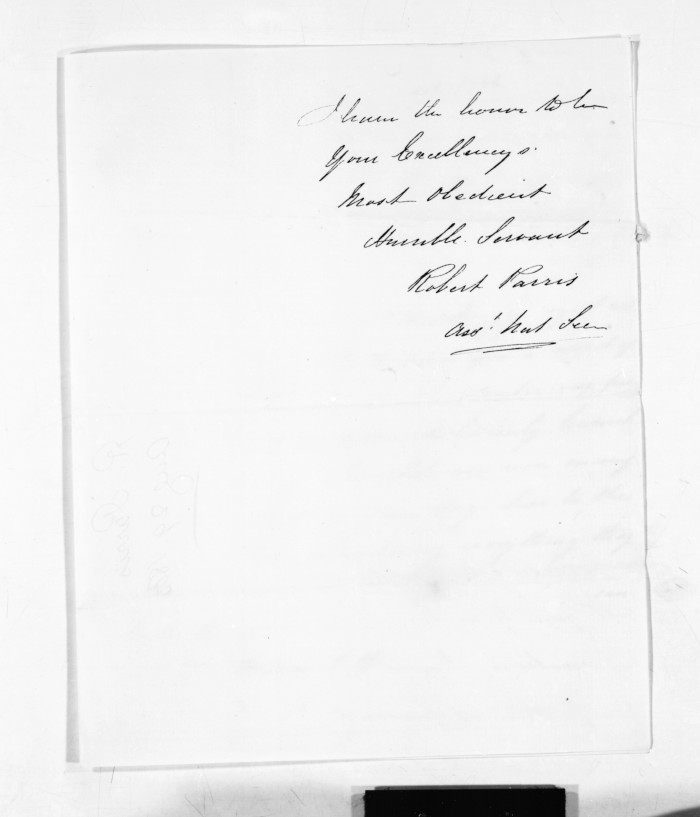 I have the honor to be
Your Excellencys.
Most Obedient
Humble. Servant
Robert Parris
Asst. Nat